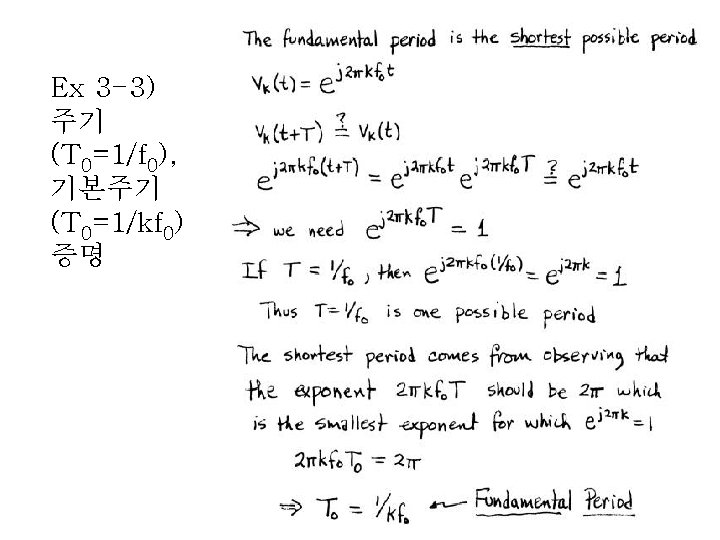 Ex 3-3)
주기
(T₀=1/f₀),
기본주기
(T₀=1/kf₀)
증명
The fundamental period is the shortest possible period
Vₖ(t) = e^{j2πkf₀t}
Vₖ(t+T) ≟ Vₖ(t)
e^{j2πkf₀(t+T)} = e^{j2πkf₀t} e^{j2πkf₀T} ≟ e^{j2πkf₀t}
⇒ we need e^{j2πkf₀T} = 1
If T = 1/f₀, then e^{j2πkf₀(1/f₀)} = e^{j2πk} = 1
Thus T=1/f₀ is one possible period
The shortest period comes from observing that
the exponent 2πkf₀T should be 2π which
is the smallest exponent for which e^{j2πk} = 1
2πkf₀T₀ = 2π
⇒ T₀ = 1/kf₀ ← Fundamental Period